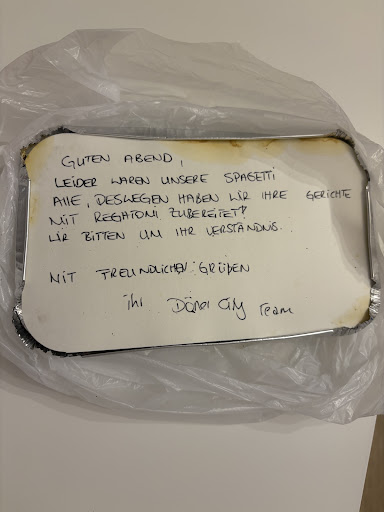 GUTEN ABEND,
LEIDER WAREN UNSERE SPAGETTI
Alle, DESWEGEN HABEN WIR IHRE GERICHTE
MIT REGATONI ZUBEREITET!
WIR BITTEN UM IHR VERSTÄNDNIS.
MIT FREUNDLICHEN GRÜßEN
ihr Döner City Team